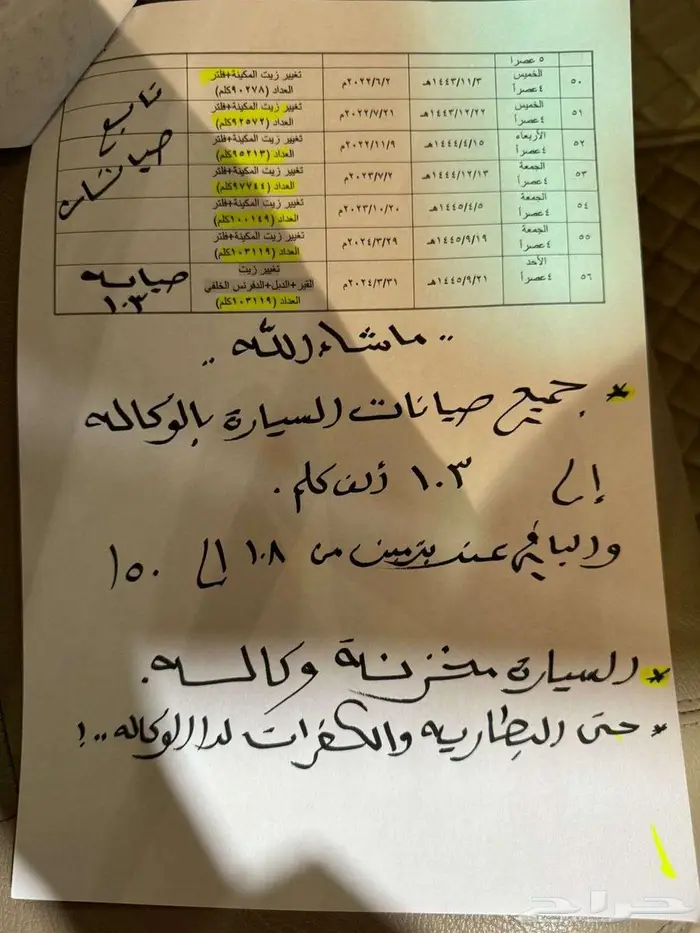 ٥ عصراً
٥٠ الخميس ٤ عصراً ١٤٤٣/١١/٣هـ ٢٠٢٢/٦/٢م تغيير زيت المكينة+فلتر العداد (٩٠٢٧٨كلم)
٥١ الخميس ٤ عصراً ١٤٤٣/١٢/٢٢هـ ٢٠٢٢/٧/٢١م تغيير زيت المكينة+فلتر العداد (٩٢٥٧٢كلم)
٥٢ الأربعاء ٤ عصراً ١٤٤٤/٤/١٥هـ ٢٠٢٢/١١/٩م تغيير زيت المكينة+فلتر العداد (٩٥٢١٣كلم)
٥٣ الجمعة ٤ عصراً ١٤٤٤/١٢/١٣هـ ٢٠٢٣/٧/٢م تغيير زيت المكينة+فلتر العداد (٩٧٧٤٤كلم)
٥٤ الجمعة ٤ عصراً ١٤٤٥/٤/٥هـ ٢٠٢٣/١٠/٢٠م تغيير زيت المكينة+فلتر العداد (١٠٠١٤٩كلم)
٥٥ الجمعة ٤ عصراً ١٤٤٥/٩/١٩هـ ٢٠٢٤/٣/٢٩م تغيير زيت المكينة+فلتر العداد (١٠٣١١٩كلم)
٥٦ الأحد ٤ عصراً ١٤٤٥/٩/٢١هـ ٢٠٢٤/٣/٣١م تغيير زيت القير+الدبل+الدفرنس الخلفي العداد (١٠٣١١٩كلم)
تابع
صيانات
صيانه
١٠٣
.. ماشاء الله ..
* جميع صيانات السيارة بالوكاله
إلى ١٠٣ ألف كلم.
والباقي عند بترمين من ١٠٨ إلى ١٥٠
* السيارة مخزنة وكالة.
* حتى البطاريه والكفرات لدا الوكاله..!
حراج